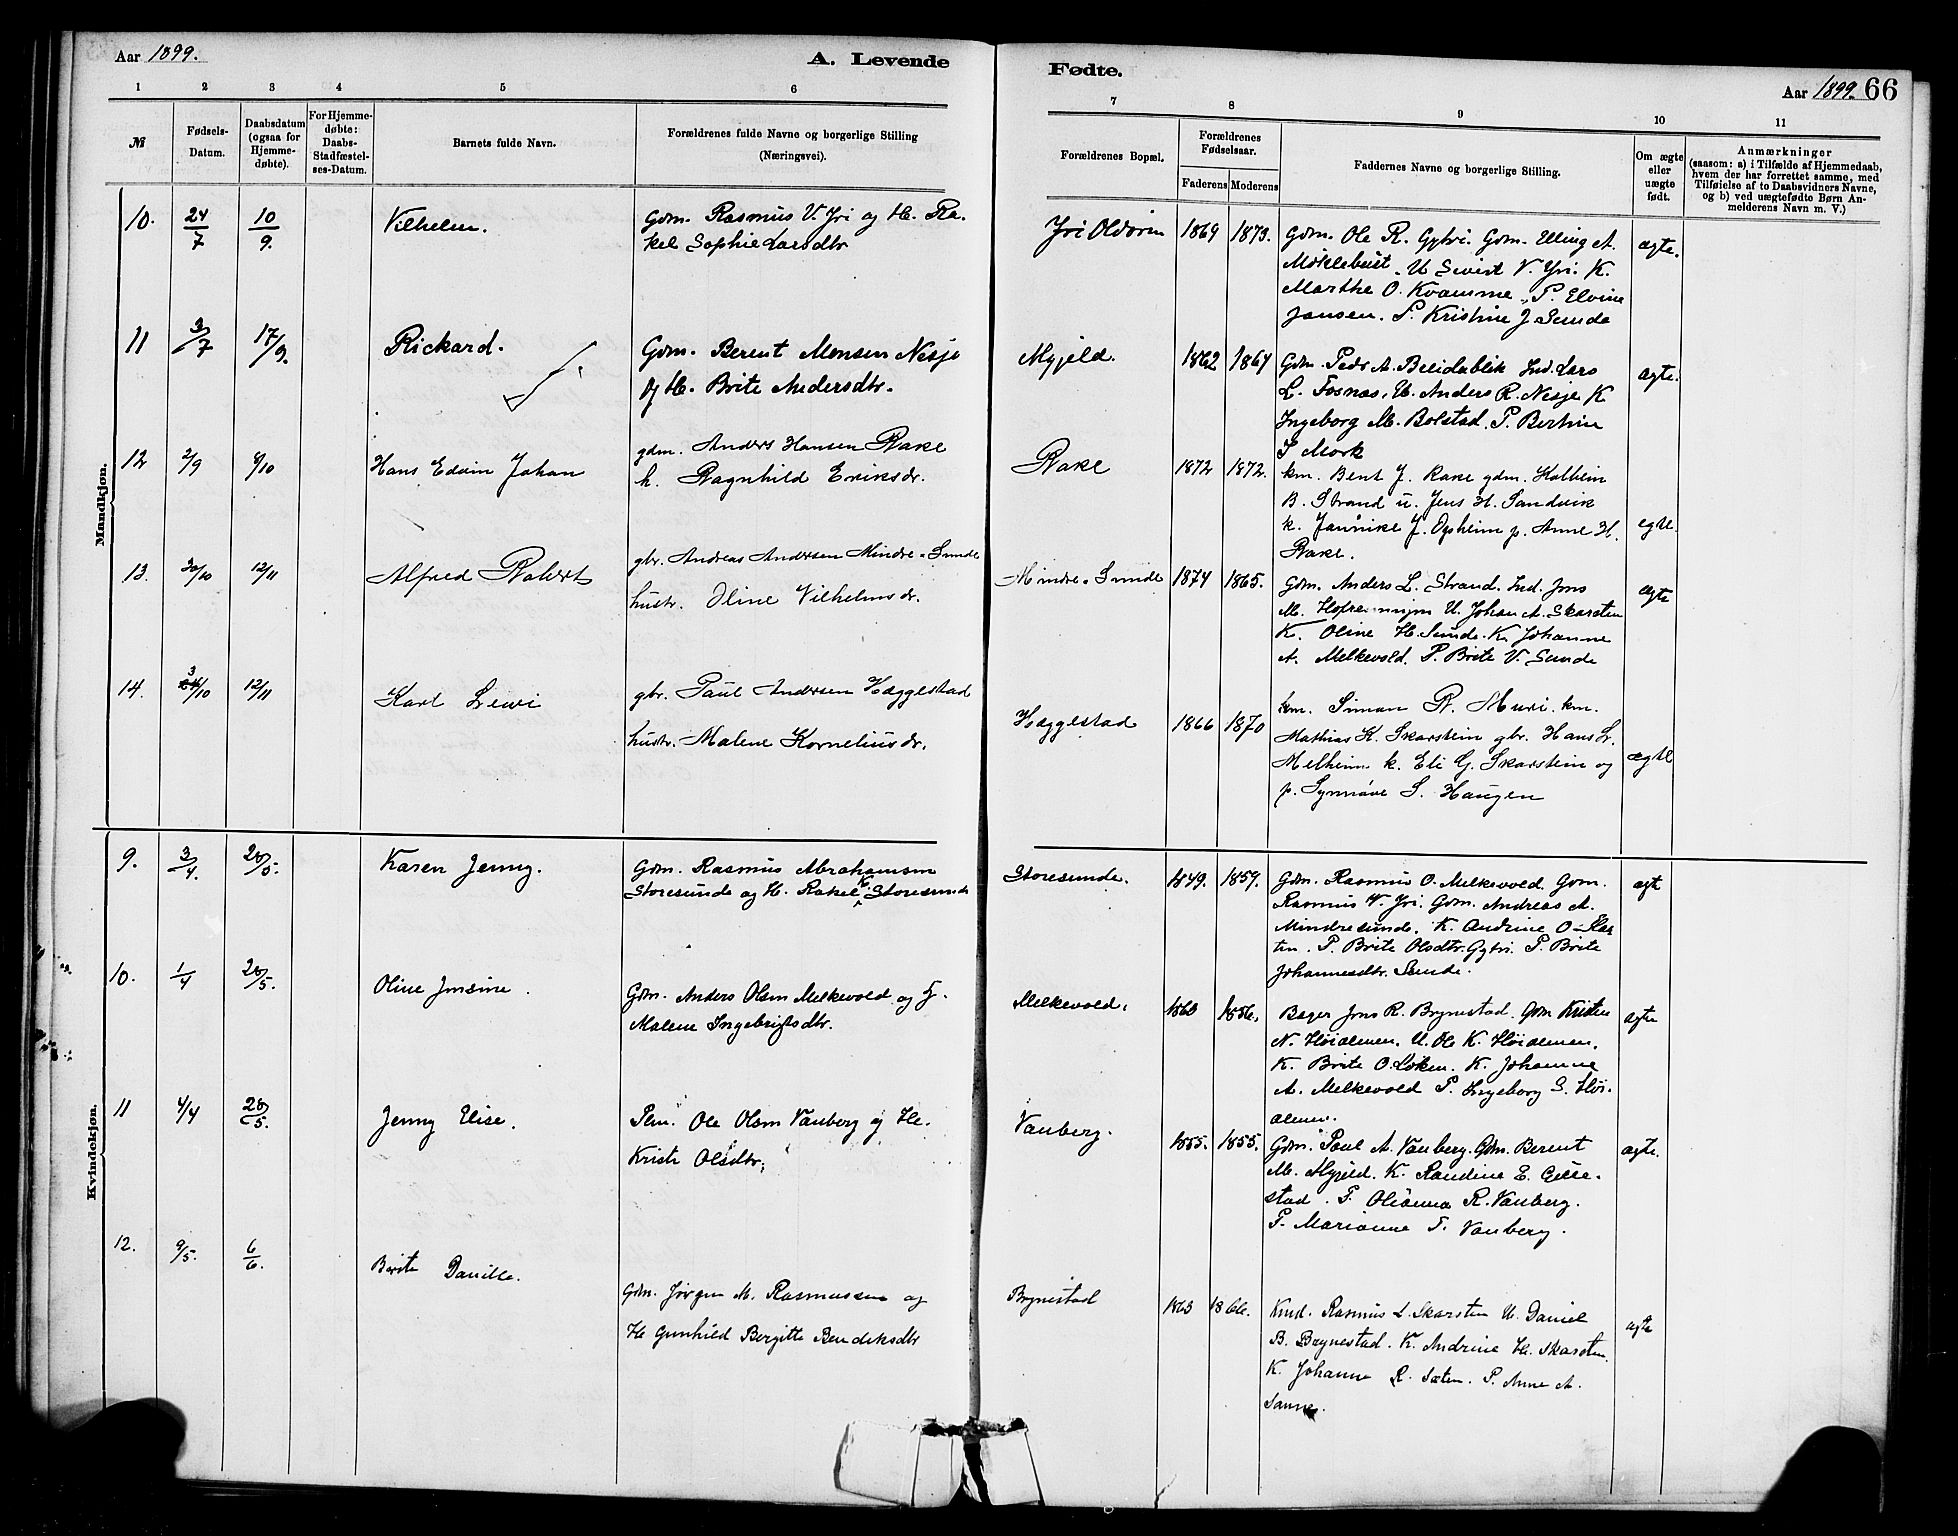 Aar 1899.
A. Levende
1 2 3 4 5 6
№
Fødsels-
Datum.
Daabsdatum
(ogsaa for
Hjemme-
døbte).
For Hjemme-
døbte:
Daabs-
Stadfæstel-
ses-Datum.
Barnets fulde Navn.
Forældrenes fulde Navne og borgerlige Stilling
(Næringsvei).
Mandkjøn.
10. 24/7 10/9. Vilhelm.
Gdm. Rasmus V. Yri og H. Ra-
kel Sophie Larsdtr
11 3/7 17/9. Rickard.
Gdm. Berent Monsen Nesje
og H. Brite Andersdtr.
12 2/9 8/10 Hans Edvin Johan
gdm. Anders Hansen Rake
h. Ragnhild Eriksdr.
13. 30/10 12/11 Alfred Robert
gbr. Andreas Andersen Mindre-Sunde
hustr. Oline Vilhelmsdr.
14. 3/10 12/11 Karl Lewi
gbr. Paul Andersen Hæggestad
hustr. Malene Korneliusdr.
Kvindekjøn.
9. 3/4. 28/5. Karen Jenny.
Gdm. Rasmus Abrahamsen
Storesunde og H. Rakel K. Storesunde
10. 1/4 28/5. Oline Jensine.
Gdm. Anders Olsen Melkevold og H.
Malene Ingebrigtsdtr.
11 4/4 28/5. Jenny Elise.
Plm. Ole Olsen Vanberg og H.
Kristi Olsdtr.
12. 9/5. 6/6. Berite Danille.
Gdm. Jørgen M. Rasmussen og
H Gunhild Bergitte Bendiksdtr
Fødte.
Aar 1899. 66
7 8 9 10 11
Forældrenes Bopæl.
Forældrenes
Fødselsaar.
Faderens Moderens
Faddernes Navne og borgerlige Stilling.
Om ægte
eller
uægte
født.
Anmærkninger
(saasom: a) i Tilfælde af Hjemmedaab,
hvem der har forrettet samme, med
Tilføielse af to Daabsvidners Navne,
og b) ved uægtefødte Børn An-
melderens Navn m. V.)
Yri Oldøren 1869 1873.
Gdm. Ole R. Gytri. Gdm. Elling A.
Møklebust. U Sivert V. Yri. K.
Marthe O. Kvamme, P. Elvine
Jansen. P. Kristine J. Sunde
ægte.
Myjeld. 1862 1864
Gdm. Peder A. Breidablik Ind. Lars
L. Fosnæs, U. Anders R. Nesje K
Ingeborg M. Bolstad. P. Bertine
S Mork
ægte.
Rake 1872 1872.
km. Bent J. Rake gdm. Halbein
B. Strand u. Jens H. Sandvik
k. Jannike J. Opheim p. Anne H.
Rake.
egte.
Mindre-Sunde 1874 1865.
Gdm. Anders L. Strand. Ind. Jens
M. U. Johan A. Skarsten
K. Oline H. Sunde. K. Johanne
A. Melkevold. P. Brite V. Sunde
ægte
Hæggestad 1866 1870
km. Simon R. Muri. km.
Mathias K. Skarstein gbr. Hans L.
Melheim k. Eli G. Skarstein og
p. Synnøve S. Haugen
ægte
Storesunde. 1849. 1859.
Gdm. Rasmus O. Melkevold. Gdm.
Rasmus V. Yri. Gdm. Andreas A.
Mindresunde. K. Andrine O. Skar-
ten. P. Brite Olsdtr. Gytri. P. Brite
Johannesdtr. Sunde.
ægt
Melkevold. 1860 1856.
Bager Jens R. Brynestad. Gdm Kristen
N. Høialmen. U. Ole K. Høialmen.
K. Brite O. Løken. K. Johanne
A. Melkevold P. Ingeborg S. Høi-
almen.
ægte
Vanberg. 1855. 1855.
Gdm. Paul A. Vanberg. Gdm. Berent
M. Myjeld. K. Randine E. Gjøe-
stad. P. Olianna R. Vanberg.
P. Marianne T. Vanberg.
ægte.
Brynestad 1865 1866.
Kmd. Rasmus L. Skarsten U. Daniel
B. Brynestad. K. Andrine H. Skarsten.
K. Johanne R. Sæten. P. Anne A.
Sannes.
ægte